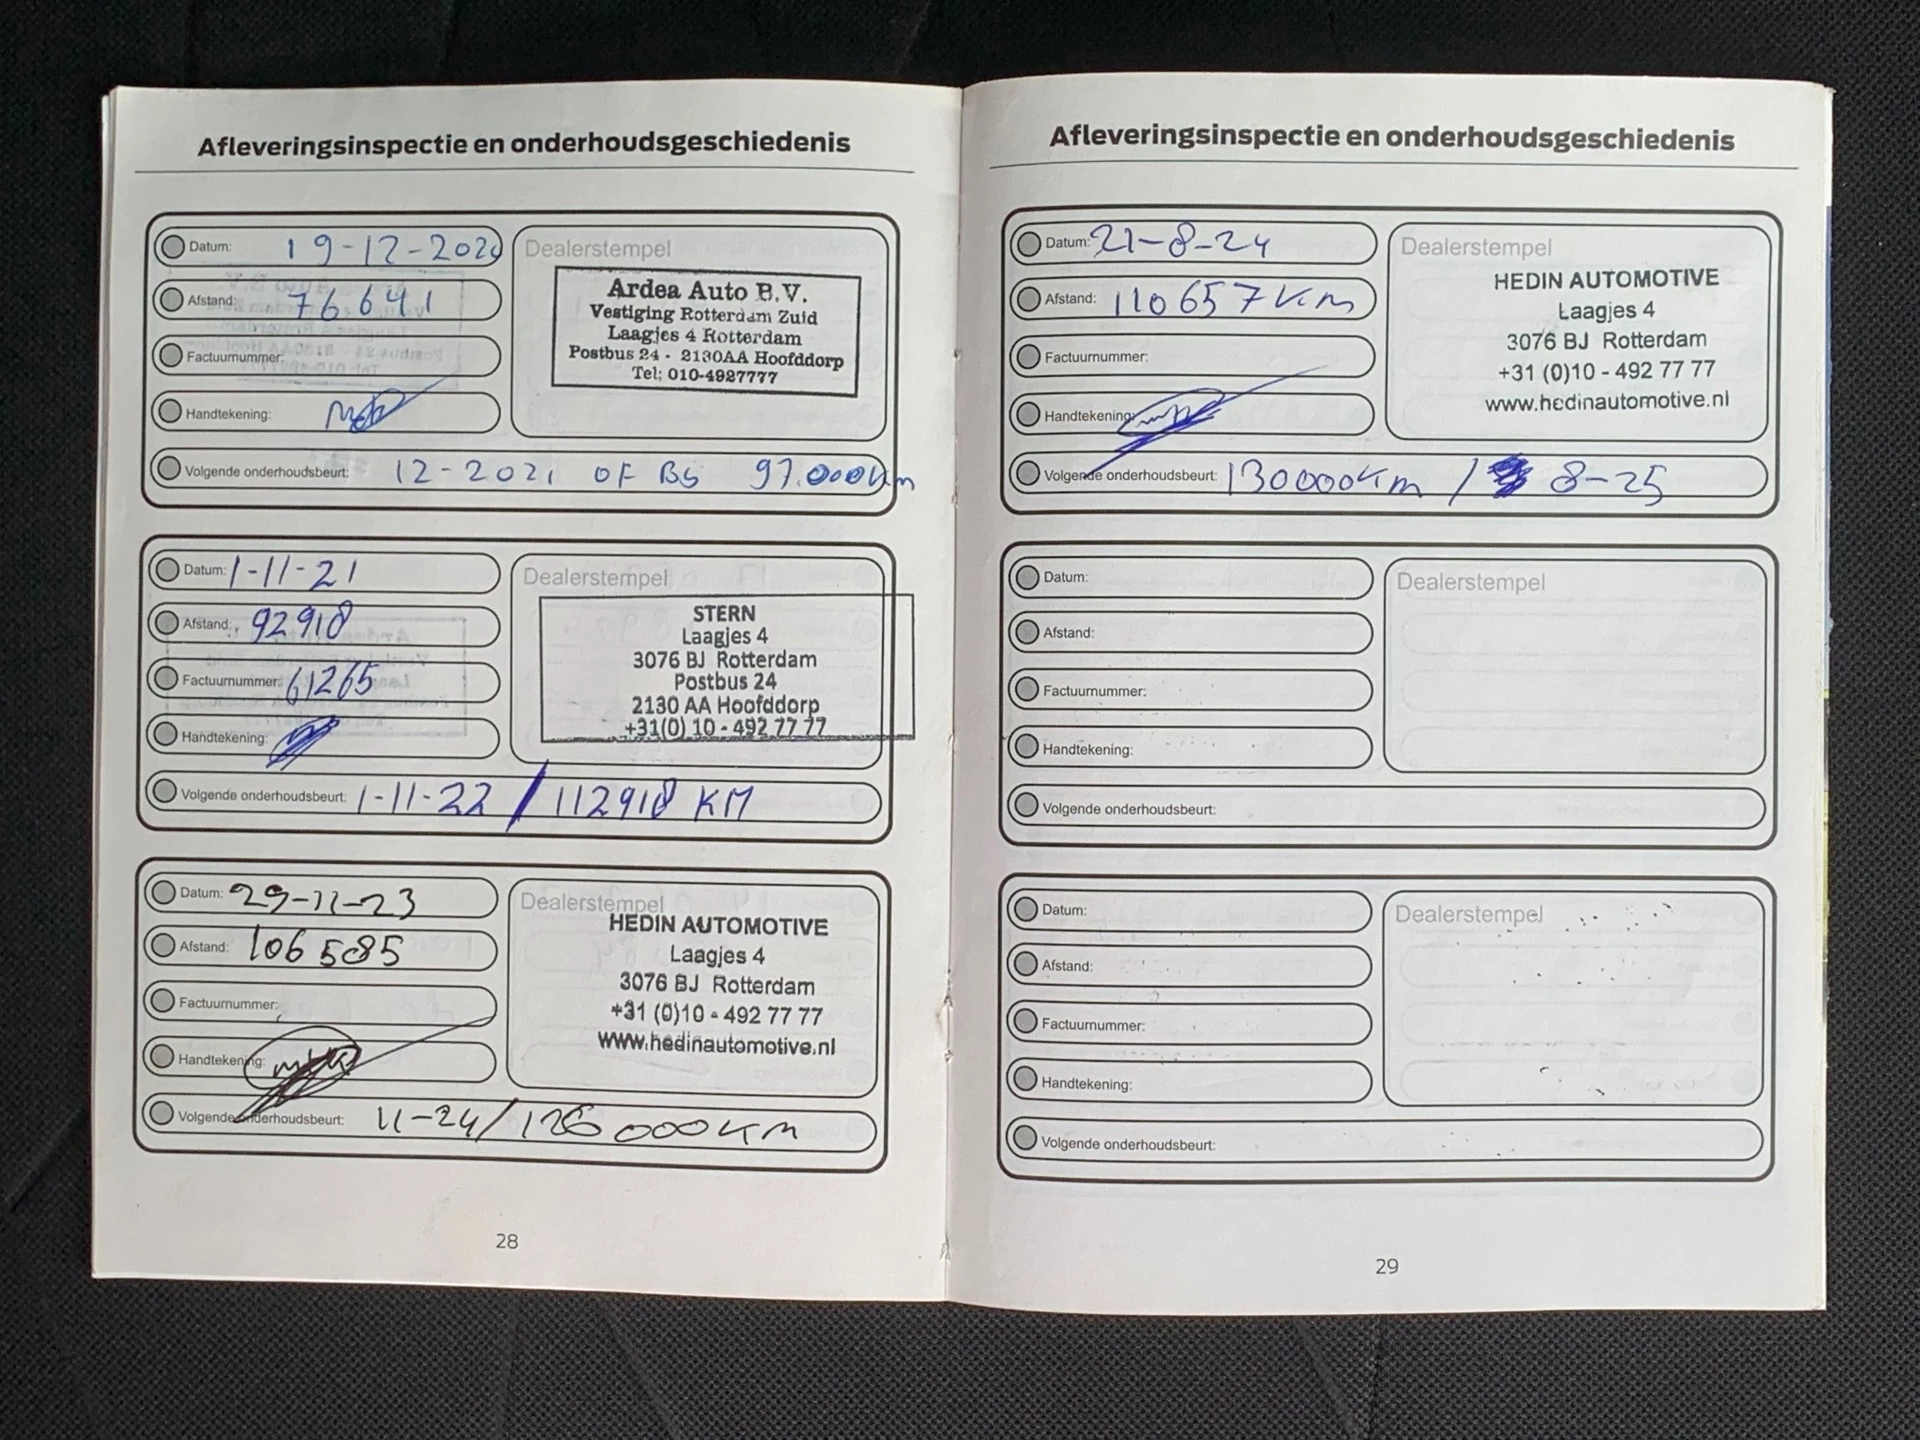 Afleveringsinspectie en onderhoudsgeschiedenis
Datum: 19-12-2020
Afstand: 76641
Factuurnummer:
Handtekening:
Volgende onderhoudsbeurt: 12-2021 OF Bs 97.000km
Dealerstempel
Ardea Auto B.V.
Vestiging Rotterdam Zuid
Laagjes 4 Rotterdam
Postbus 24 - 2130AA Hoofddorp
Tel: 010-4927777
Datum: 1-11-21
Afstand: 92918
Factuurnummer: 61265
Handtekening:
Volgende onderhoudsbeurt: 1-11-22 / 112918 KM
Dealerstempel
STERN
Laagjes 4
3076 BJ Rotterdam
Postbus 24
2130 AA Hoofddorp
+31(0) 10 - 492 77 77
Datum: 29-11-23
Afstand: 106585
Factuurnummer:
Handtekening:
Volgende onderhoudsbeurt: 11-24 / 126000km
Dealerstempel
HEDIN AUTOMOTIVE
Laagjes 4
3076 BJ Rotterdam
+31 (0)10 - 492 77 77
www.hedinautomotive.nl
28
Afleveringsinspectie en onderhoudsgeschiedenis
Datum: 21-8-24
Afstand: 110657 km
Factuurnummer:
Handtekening:
Volgende onderhoudsbeurt: 130000km / 8-25
Dealerstempel
HEDIN AUTOMOTIVE
Laagjes 4
3076 BJ Rotterdam
+31 (0)10 - 492 77 77
www.hedinautomotive.nl
Datum:
Afstand:
Factuurnummer:
Handtekening:
Volgende onderhoudsbeurt:
Dealerstempel
Datum:
Afstand:
Factuurnummer:
Handtekening:
Volgende onderhoudsbeurt:
Dealerstempel
29